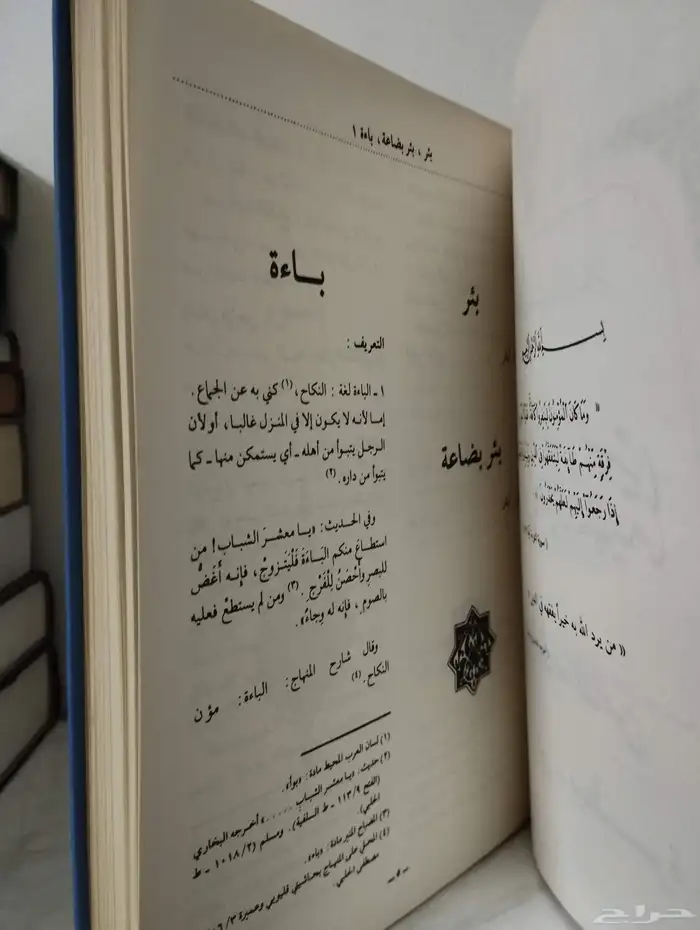 بئر ، بئر بضاعة، باءة ١
بئر
بئر بضاعة
باءة
التعريف :
١ ـ الباءة لغة : النكاح،(١) كني به عن الجماع .
إما لأنه لا يكون إلا في المنزل غالبا، أو لأن
الرجل يتبوأ من أهله ـ أي يستمكن منها ـ كما
يتبوأ من داره.(٢)
وفي الحديث: «يا معشرَ الشباب! من
استطاعَ منكم البَاءَةَ فَلْيَتزوجْ، فإنه أَغَضُّ
للبصرِ وأَحْصَنُ لِلْفَرْجِ.(٣) ومن لم يستطعْ فعليه
بالصومِ، فإنه له وِجاءٌ».
وقال شارح المنهاج: الباءة: مؤن
النكاح.(٤)
(١) لسان العرب المحيط مادة: «بوأ».
(٢) حديث: «يا معشر الشباب ..... » أخرجه البخاري
(الفتح ٩/ ١١٣ ـ ط السلفية). ومسلم (٢/ ١٠١٨ ـ ط
الحلبي).
(٣) المصباح المنير مادة: «باء».
(٤) المحلي على المنهاج بحاشيتي قليوبي وعميرة ٣/
مصطفى الحلبي.
ـ ٥ ـ
« وَمَا كَانَ الْمُؤْمِنُونَ لِيَنفِرُوا كَافَّةً
فِرْقَةٍ مِنْهُمْ طَائِفَةٌ لِيَتَفَقَّهُوا فِي
إِذَا رَجَعُوا إِلَيْهِمْ لَعَلَّهُمْ يَحْذَرُونَ »
« من يرد الله به خيراً يفقهه في
حراج